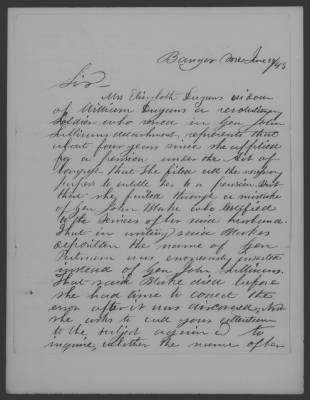 Bangor Me June 28/45
Sir
Mrs Elizabeth Dugans widow
of William Dugans a revolutionary
soldier who served in Gen John
Sullivans detachment, represents that
about four years since she applied
for a pension under the Act of
Congress. That she filed all the necessary
papers to entitle her to a pension. But
that she failed through a mistake
of Gen John Blake who testified
to the services of her said husband.
That in writing said Blakes
deposition the name of Gen
Putnam was erroneously inserted
instead of Gen John Sullivans.
That said Blake died before
she had time to correct the
error after it was discovered. Now
she asks to call your attention
to the subject again & to
inquire, whether the name of her